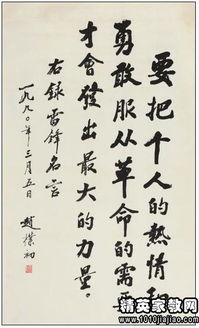 要把个人的熱情和
勇敢服从革命的需要
才會發出最大的力量。
右錄雷鋒名言
一九九〇年三月五日
趙樸初
精英家教网
www.1010jiajiao.com